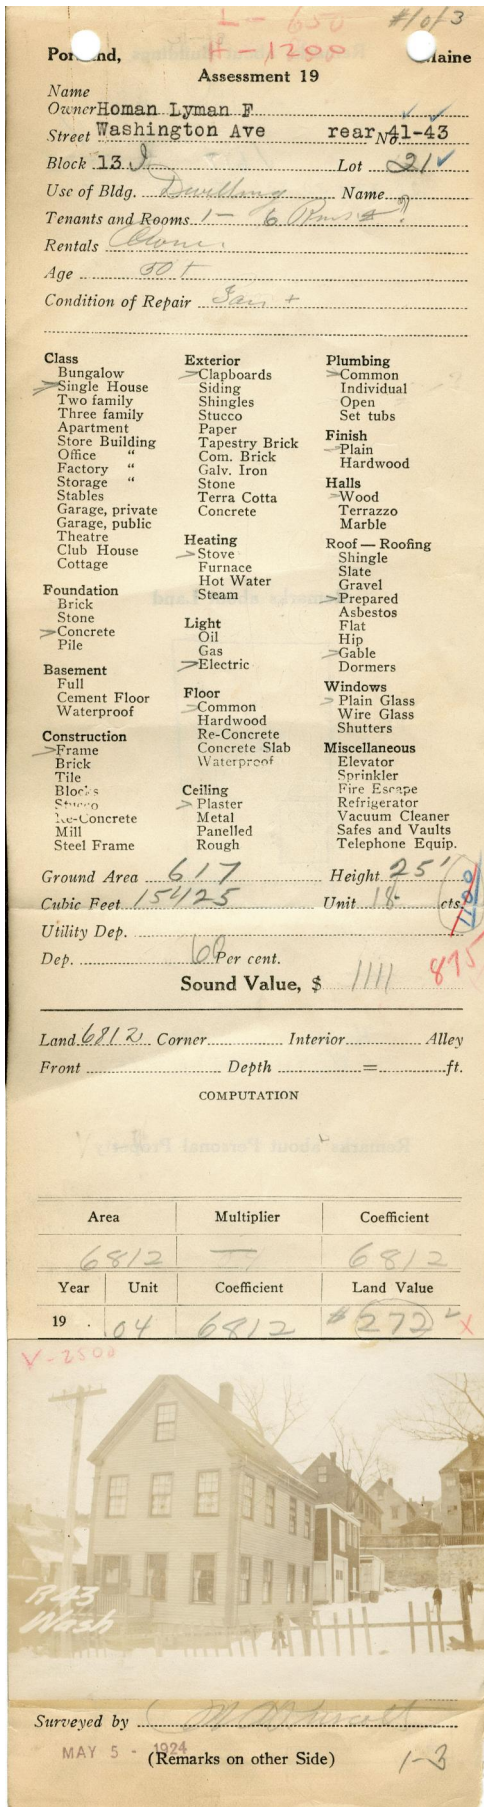 L - 650
#1 of 3
H - 1200
Portland, Maine
Assessment 19
Name
Owner Homan Lyman F
Street Washington Ave rear No. 41-43
Block 13 I Lot 21
Use of Bldg. Dwelling Name
Tenants and Rooms 1 - 6 Rms ?
Rentals Owner
Age 50 +
Condition of Repair Fair +
Class
Bungalow
Single House
Two family
Three family
Apartment
Store Building
Office "
Factory "
Storage "
Stables
Garage, private
Garage, public
Theatre
Club House
Cottage
Foundation
Brick
Stone
Concrete
Pile
Basement
Full
Cement Floor
Waterproof
Construction
Frame
Brick
Tile
Blocks
Stucco
Re-Concrete
Mill
Steel Frame
Exterior
Clapboards
Siding
Shingles
Stucco
Paper
Tapestry Brick
Com. Brick
Galv. Iron
Stone
Terra Cotta
Concrete
Heating
Stove
Furnace
Hot Water
Steam
Light
Oil
Gas
Electric
Floor
Common
Hardwood
Re-Concrete
Concrete Slab
Waterproof
Ceiling
Plaster
Metal
Panelled
Rough
Plumbing
Common
Individual
Open
Set tubs
Finish
Plain
Hardwood
Halls
Wood
Terrazzo
Marble
Roof — Roofing
Shingle
Slate
Gravel
Prepared
Asbestos
Flat
Hip
Gable
Dormers
Windows
Plain Glass
Wire Glass
Shutters
Miscellaneous
Elevator
Sprinkler
Fire Escape
Refrigerator
Vacuum Cleaner
Safes and Vaults
Telephone Equip.
Ground Area 617 Height 25'
Cubic Feet 15425 Unit 18 cts.
Utility Dep.
Dep. 60 Per cent.
875
Sound Value, $ 1111
Land 6812 Corner Interior Alley
Front Depth = ft.
COMPUTATION
Area Multiplier Coefficient
6812 — 6812
Year Unit Coefficient Land Value
19 . 04 6812 $272 X
V-2500
R43
Wash
Surveyed by
MAY 5 - 1924
(Remarks on other Side)
1-3